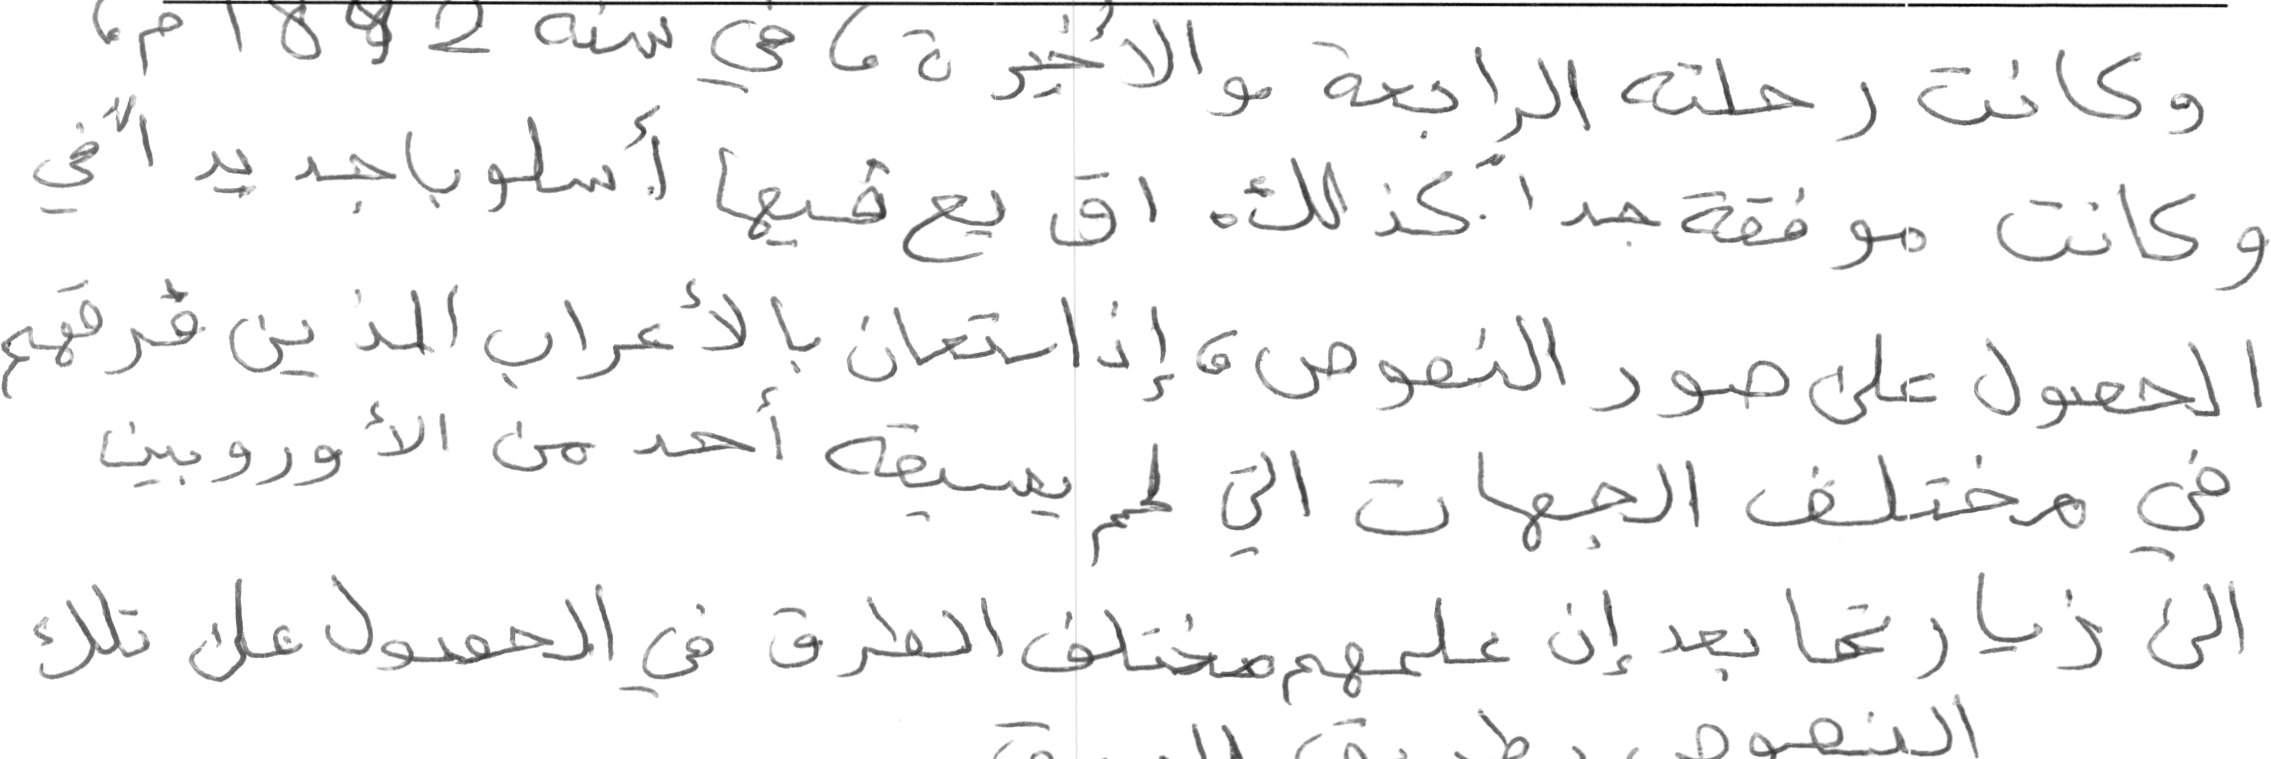 وكانت رحلته الرابعة والأخيرة، في سنة 1892 م،
وكانت موفقة جداً كذلك. اق يع فيها أسلوبا جديداً في
الحصول على صور النصوص، إذ استعان بالأعراب الذين فرقهم
في مختلف الجهات التي لم يسبقه أحد من الأوروبين
الى زيارتها بعد إن علمهم مختلف الطرق في الحصول على تلك
النصوص بطريق